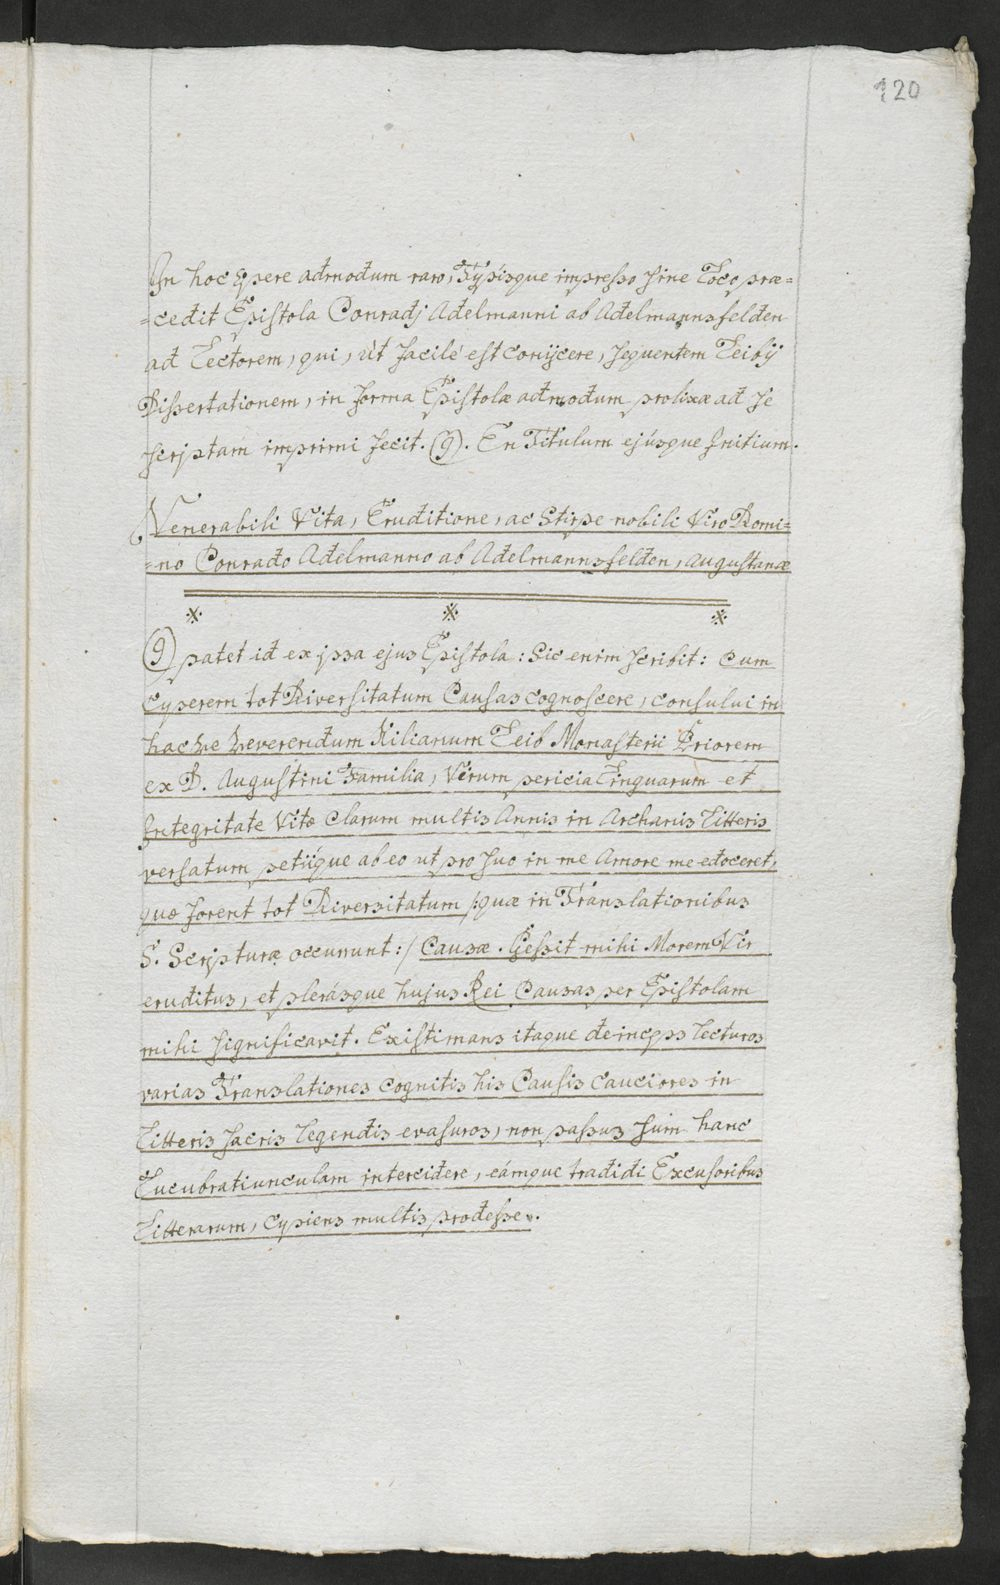 120
In hoc Opere admodum raro, Typisque impresso sine Loco præ=
=cedit Epistola Conradj Adelmanni ab Adelmannsfelden
ad Lectorem, qui, ùt facilè est conijcere, sequentem Leibij
Dissertationem, in forma Epistolæ admodum prolixæ ad se
scriptam imprimi fecit. (9). En Titulum ejúsque Initium.
Venerabili Vita, Eruditione, ac Stirpe nobili Viro Domi=
=no Conrado Adelmanno ab Adelmannsfelden, Augustanæ
(9) patet id ex jpsa ejus Epistola: Sic enim scribit: Cum
Cuperem tot Diversitatum Causas cognoscere, consului in
hac Re Reverendum Kilianum Leib Monasterii Priorem
ex D. Augustini Familia, Virum pericia Linguarum et
Integritate Vitæ Clarum multis Annis in Archanis Litteris
versatum, petiique ab eo ut pro suo in me Amore me edoceret,
quæ forent tot Diversitatum /:quæ in Translationibus
S. Scripturæ occurrunt:/ Causæ. Gessit mihi Morem Vir
eruditus, et plerásque hujus Rei Causas per Epistolam
mihi significavit. Existimans itaque deinceps Lecturos
varias Translationes Cognitis his Causis Cauciores in
Litteris Sacris Legendis evasuros, non passus sum hanc
Lucubratiunculam intercidere, eámque tradidi Excusoribus
Litterarum, Cupiens multis prodesse.